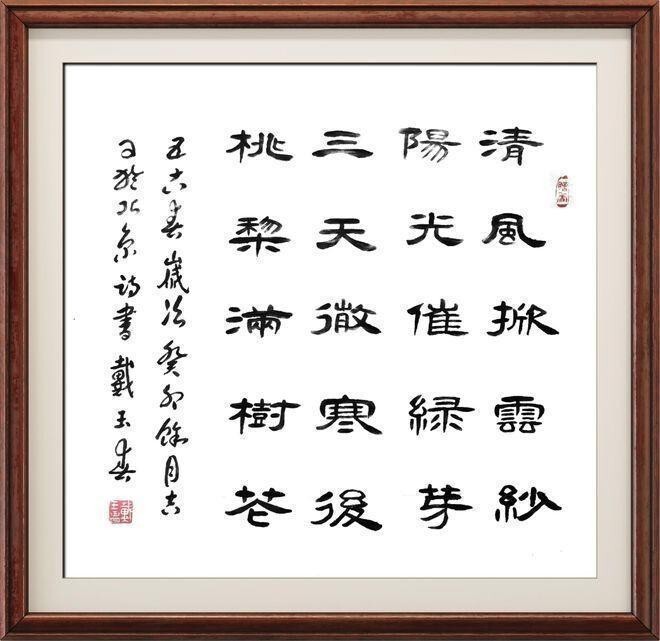 清風掀雲紗
陽光催緑芽
三天徹寒後
桃棃滿樹花
五古春歲次癸卯餘月吉
日於北京詩書戴玉春